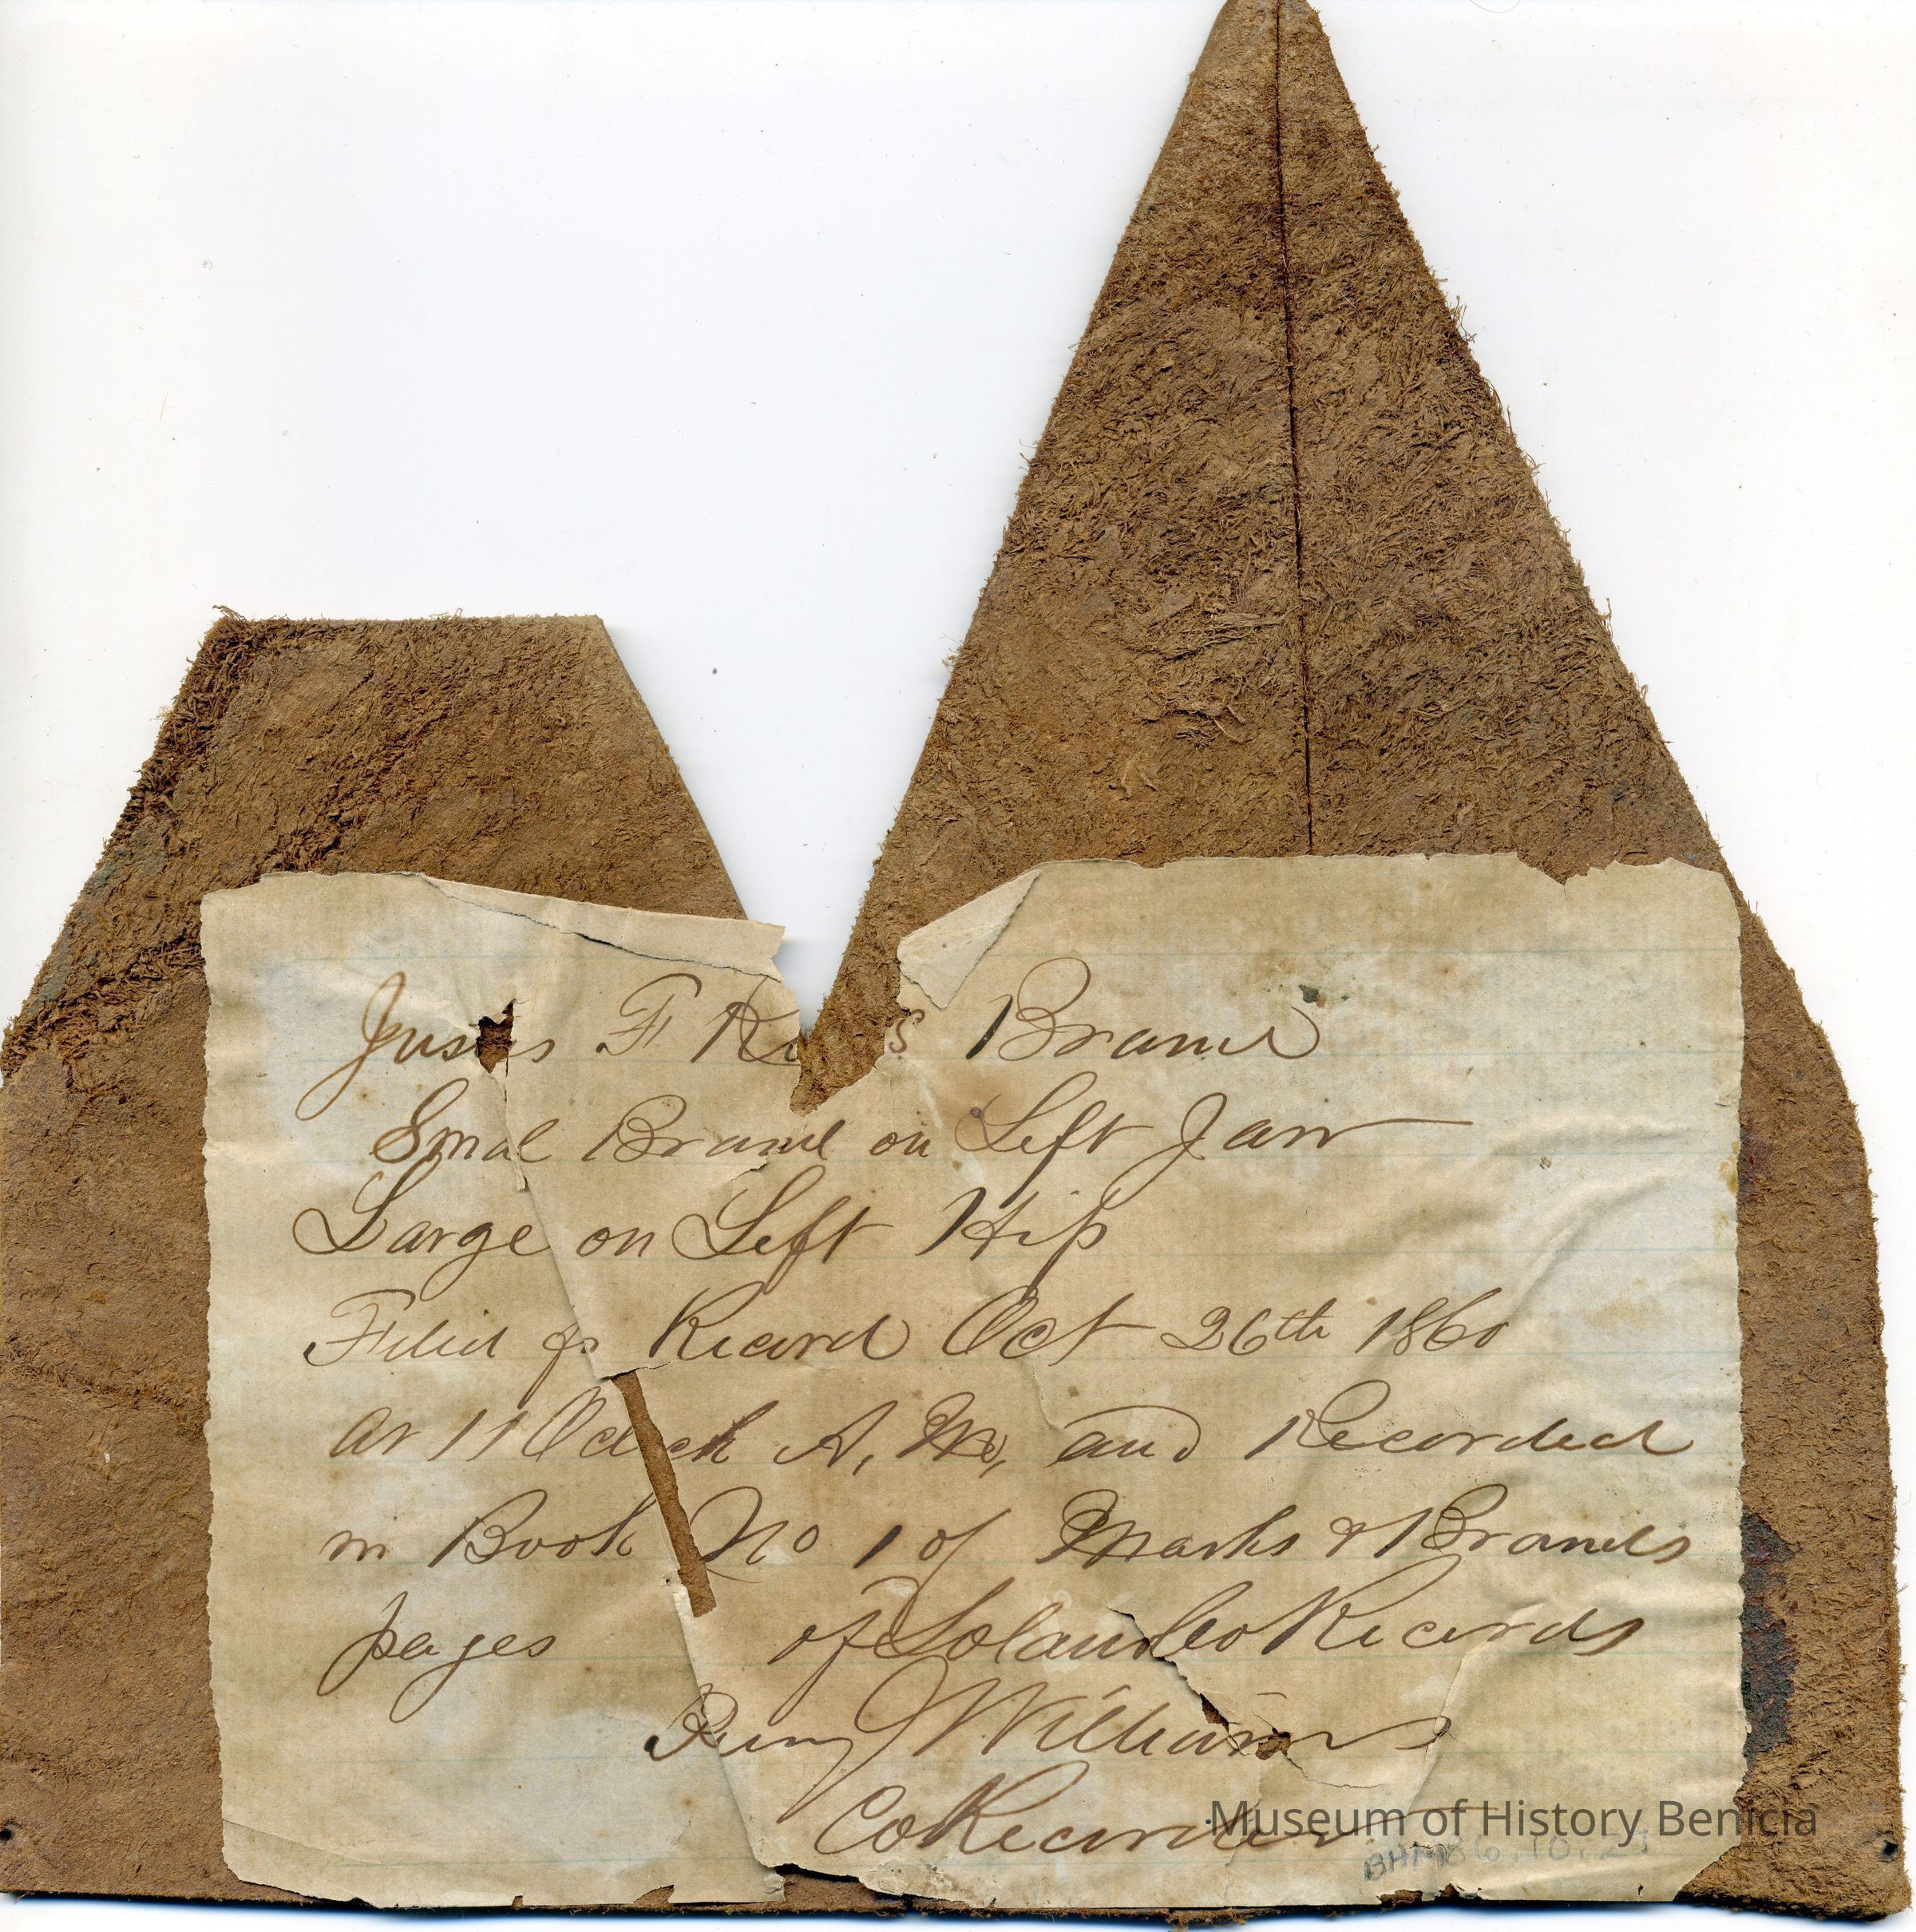 F Brand
Smal Brand on Left Jaw
Large on Left Hip
Filed for Record Oct 26th 1860
At 11 Oclock A, M, and Recorded
in Book No 1 of Marks & Brands
pages of Solano Co Records
Benj Williams
Co Recorder
Museum of History Benicia